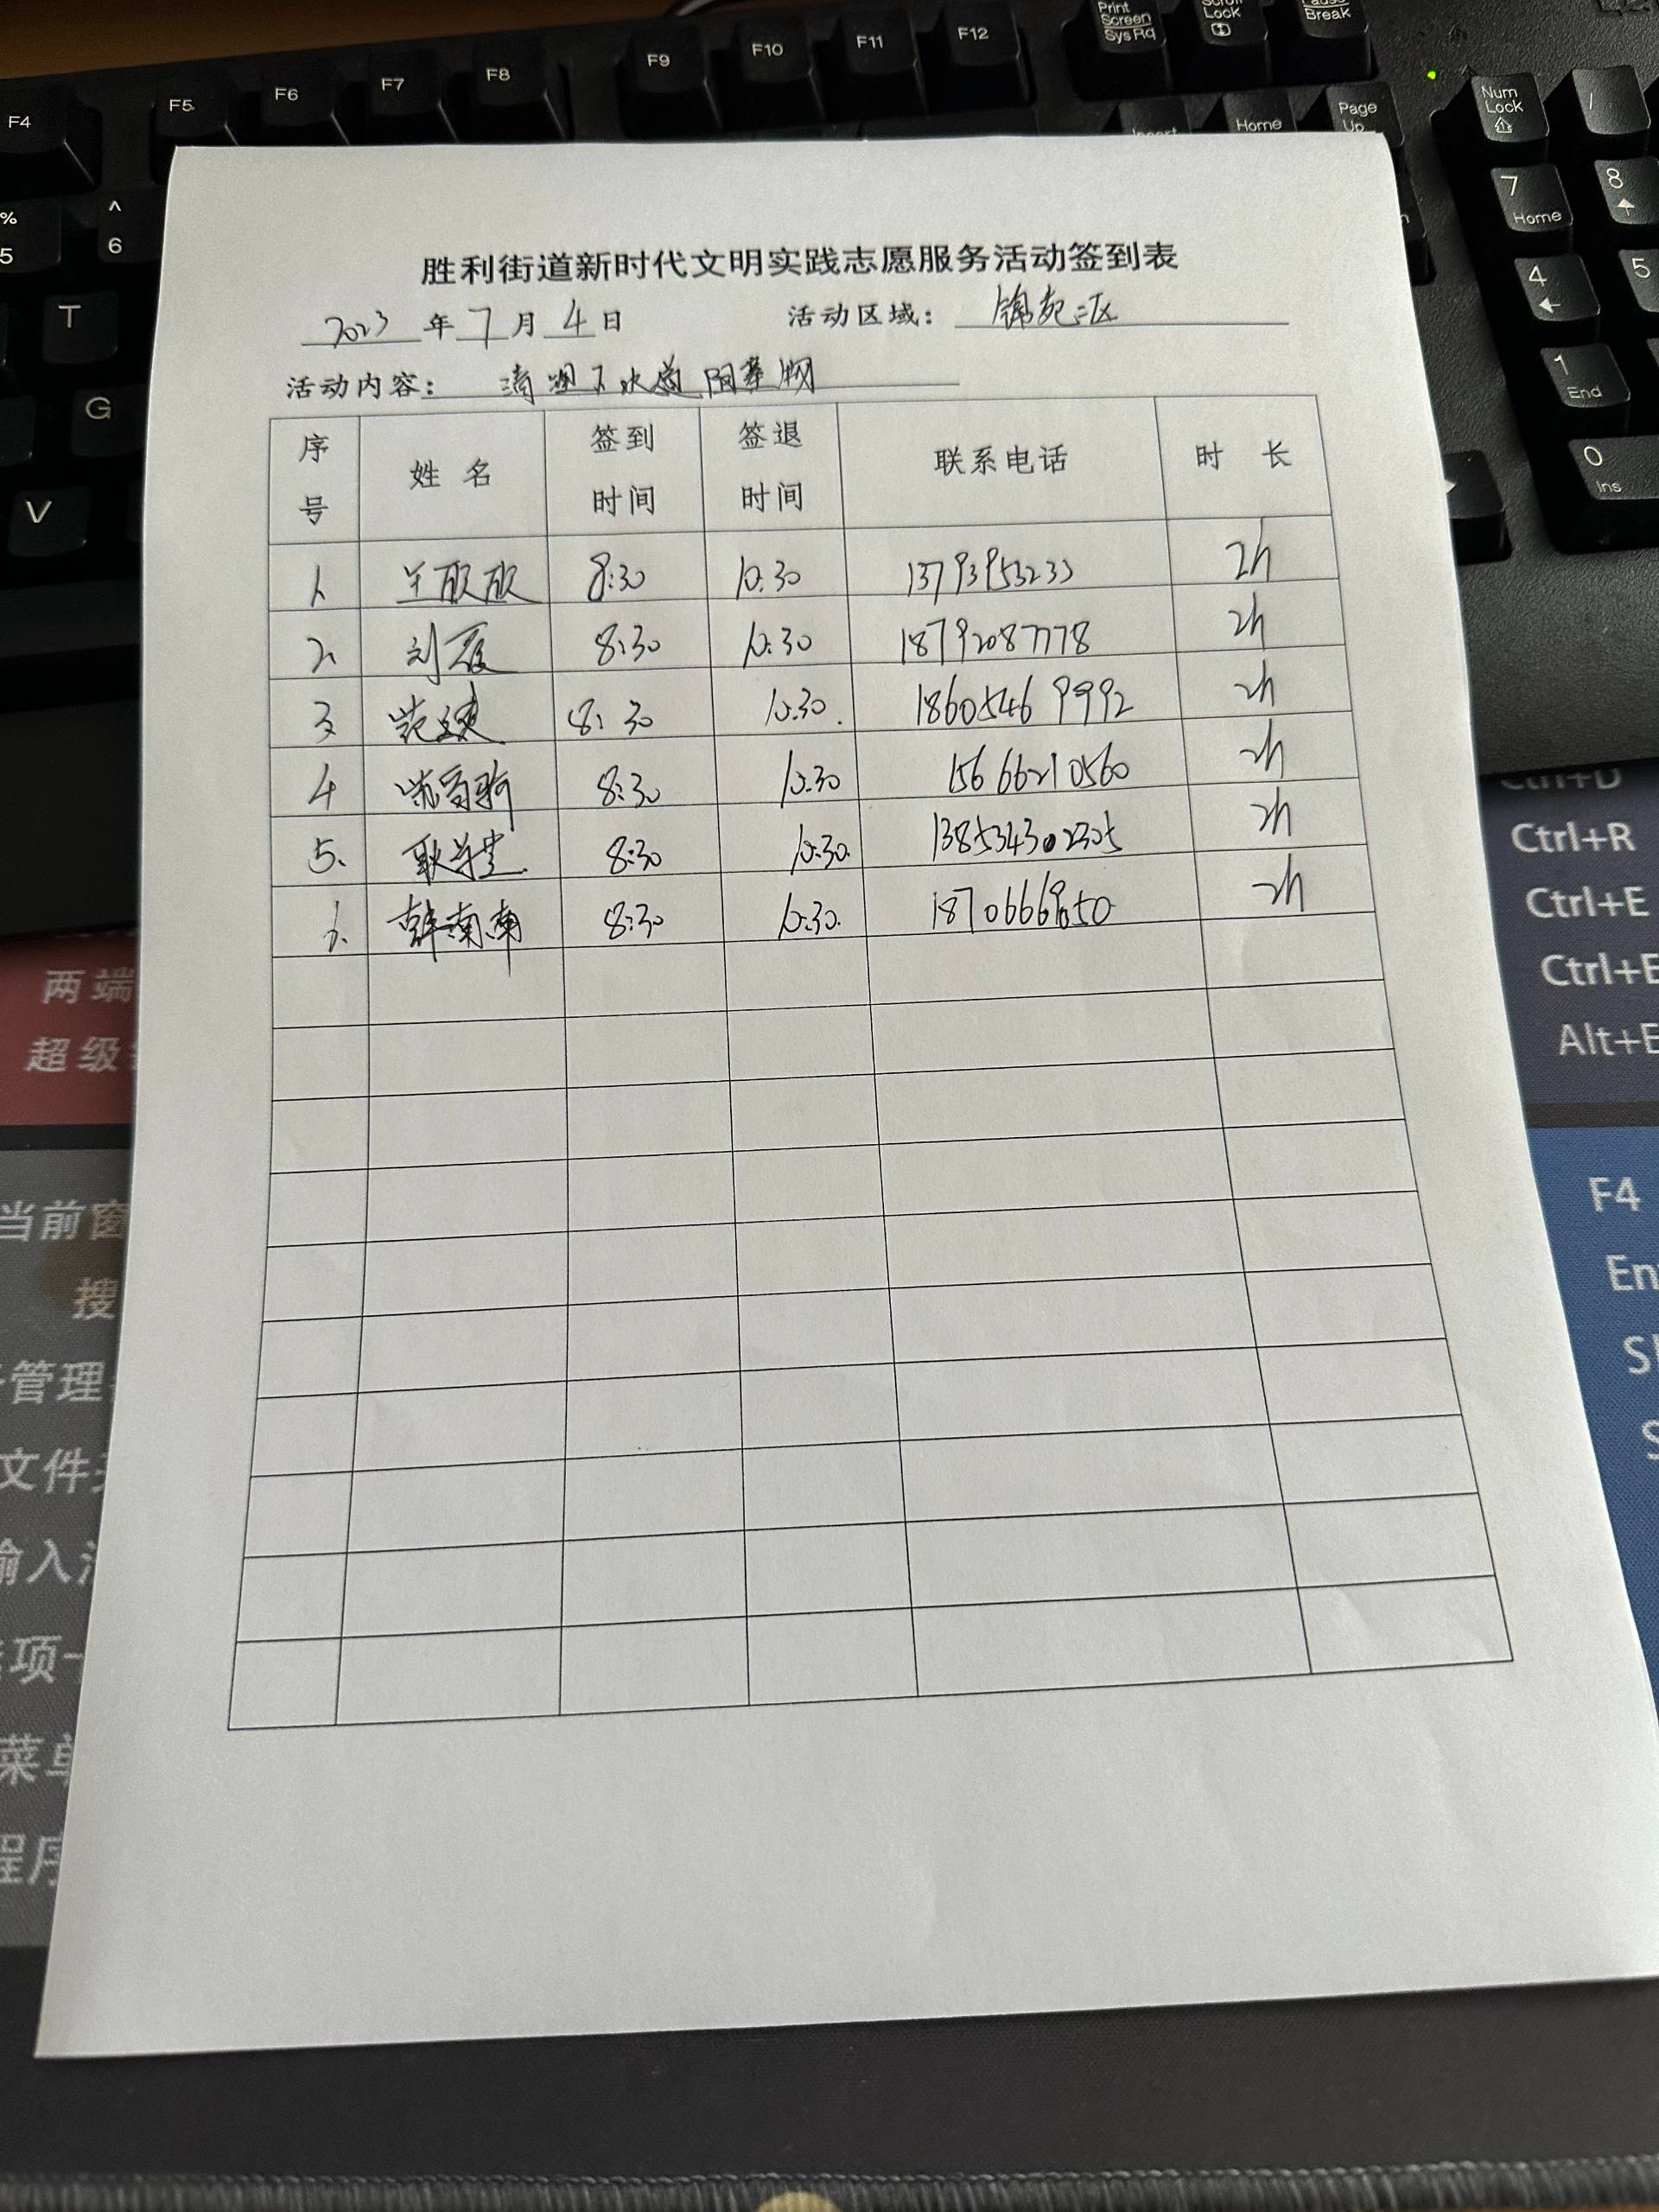 Print Screen SysRq
Scroll Lock
Pause Break
F4 F5 F6 F7 F8 F9 F10 F11 F12
Num Lock
/
Insert Home Page Up
% 5
^ 6
7 Home
8
T
4
5
G
1 End
V
0 Ins
胜利街道新时代文明实践志愿服务活动签到表
2023年7月4日 活动区域：锦苑二区
活动内容：清理下水道 阳草物
序号 姓名 签到时间 签退时间 联系电话 时长
1、 王欣欣 8:30 10:30 13793953233 2h
2、 刘霞 8:30 10:30 18792087778 2h
3、 8:30 10:30. 18605469992 2h
4 8:30 10:30 15666210560 2h
5、 8:30 10:30. 2h
韩南南 8:30 10:30. 2h
Ctrl+D
Ctrl+R
Ctrl+E
Ctrl+E
Alt+E
两端
超级
当前窗
搜
管理
文件
输入
项
菜单
程序
F4
En
S